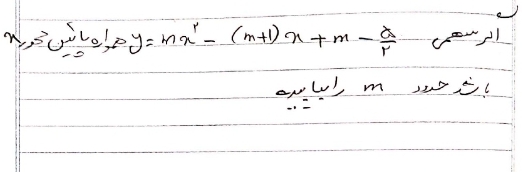 اگر سهمی y = mx² - (m+1)x + m - ۵/۲ همواره پائین محور x
باشد حدود m را بیابید